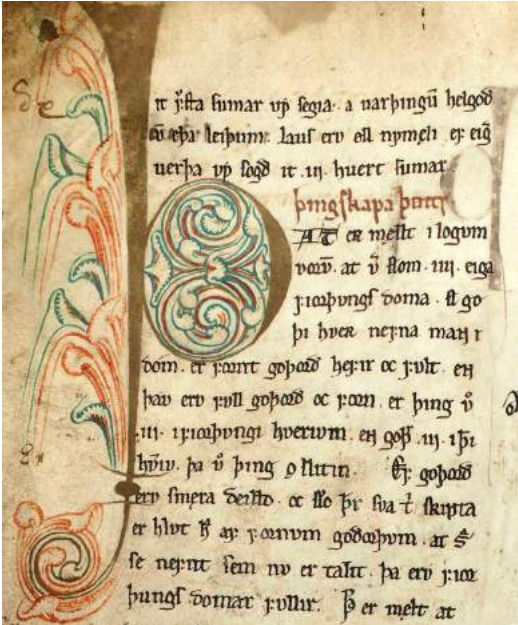 it fẏsta sumar vp segia. a varþingū helgoð
ū eþa leiþum. laus erv oll nymęli ef eig̅
verþa vp sogð it .iii. huert sumar.
þingskapa þattr
AT er męlt i logum
vorū. at v̅ slom .iiii. eiga
fiorþvngs doma. sl go
þi hver nefna man i
dom. er fornt goþorð hefir oc fvlt. en
þav erv fvll goþorð oc forn. er þing v̅
.iii. i fiorþvngi hverivm. en goþ̅ .iii. i þi̅
hv̅iv. þa v̅ þing oslitin. Ef goþorð
erv smęra deild. oc slo þr̅ sva t̅ skipta
er hlvt h̅ af fornum godorþvm. at s̅
se nefnt sem nv er talit. þa erv fior
þungs domar fvllir. Þ̅ er męlt at